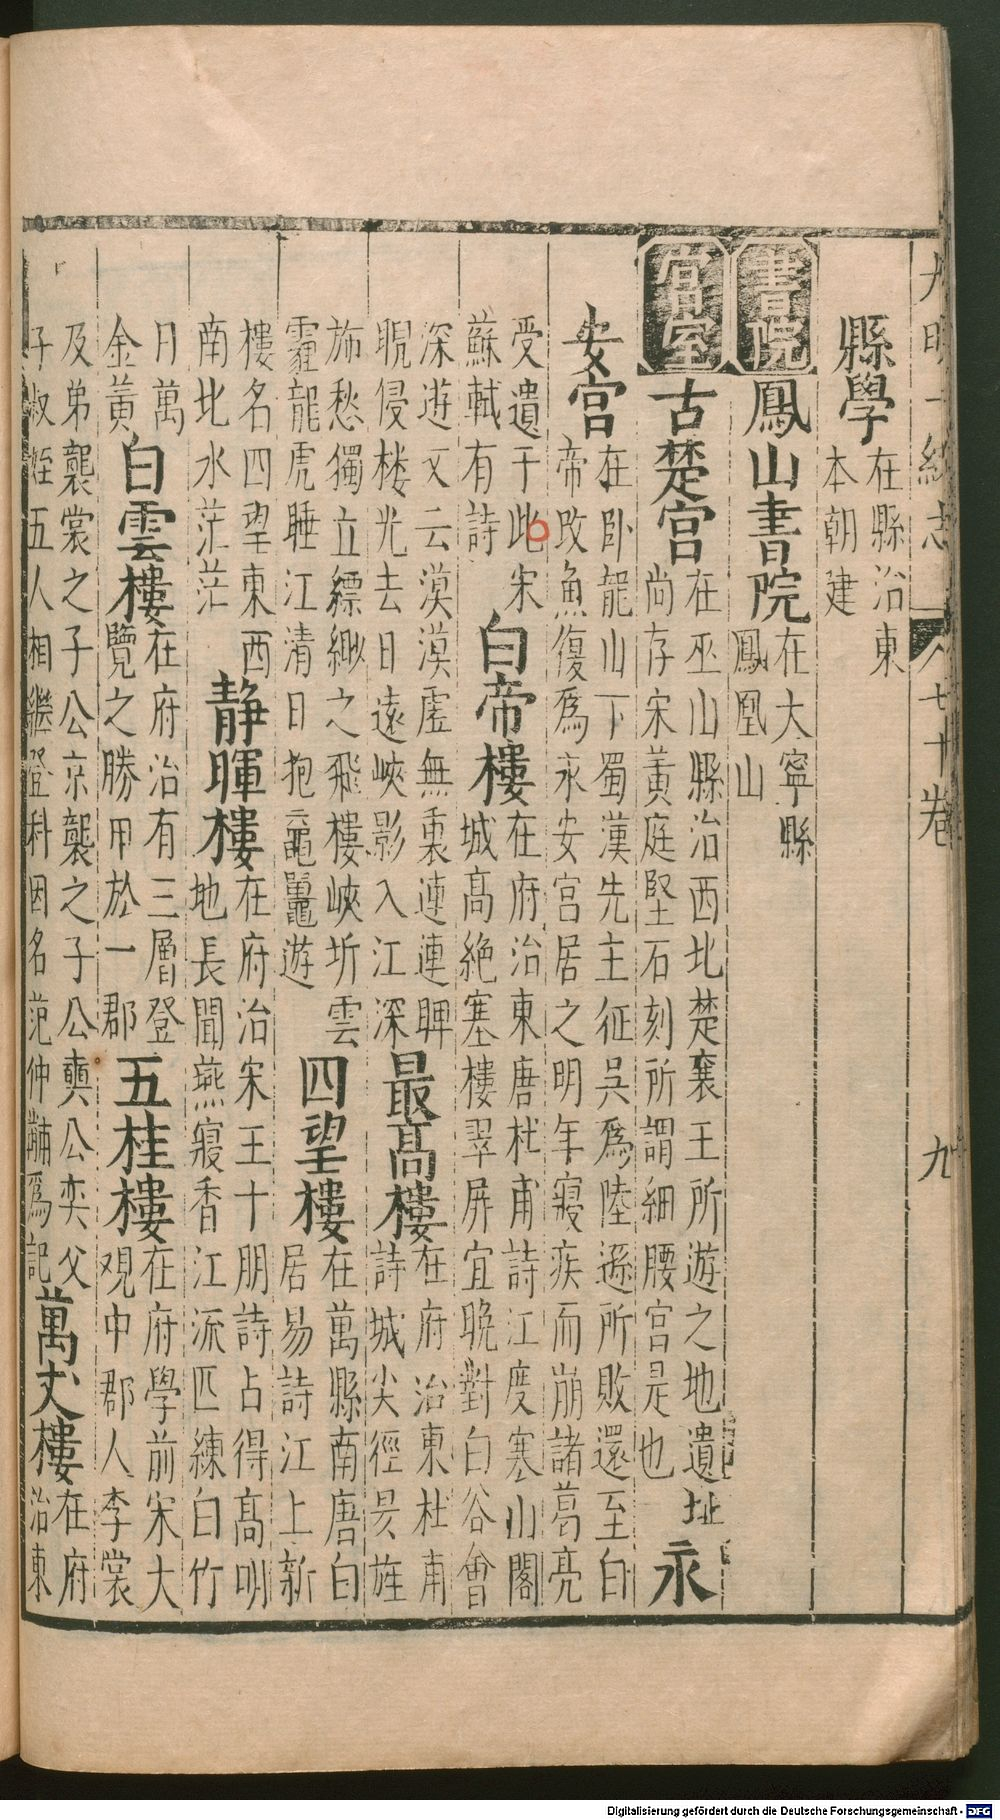 大明一統志 七十卷 九
縣學
在縣治東
本朝建
書院
鳳山書院
在大寧縣
鳳凰山
宮室
古楚宮
在巫山縣治西北楚襄王所遊之地遺址
尚存宋黃庭堅石刻所謂細腰宮是也
永
安宮
在卧龍山下蜀漢先主征吳爲陸遜所敗還至白
帝改魚復爲永安宮居之明年寢疾而崩諸葛亮
受遺于此宋
蘇軾有詩
白帝樓
在府治東唐杜甫詩江度寒山閣
城高絶塞樓翠屏宜晚對白谷會
深遊又云漠漠虛無裏連連睥
睨侵楼光去日遠峽影入江深
最高樓
在府治東杜甫
詩城尖徑昃旌
斾愁獨立縹緲之飛樓峽坼雲
霾龍虎睡江清日抱黿鼉遊
四望樓
在萬縣南唐白
居易詩江上新
樓名四望東西
南北水茫茫
静暉樓
在府治宋王十朋詩占得高明
地長聞燕寢香江流匹練白竹
日萬
金黃
白雲樓
在府治有三層登
覽之勝甲於一郡
五桂樓
在府學前宋大
觀中郡人李裳
及弟襲裳之子公京襲之子公公奕父
子叔姪五人相繼登科因名范仲黼爲記
萬丈樓
在府
治東
Digitalisierung gefördert durch die Deutsche Forschungsgemeinschaft - DFG